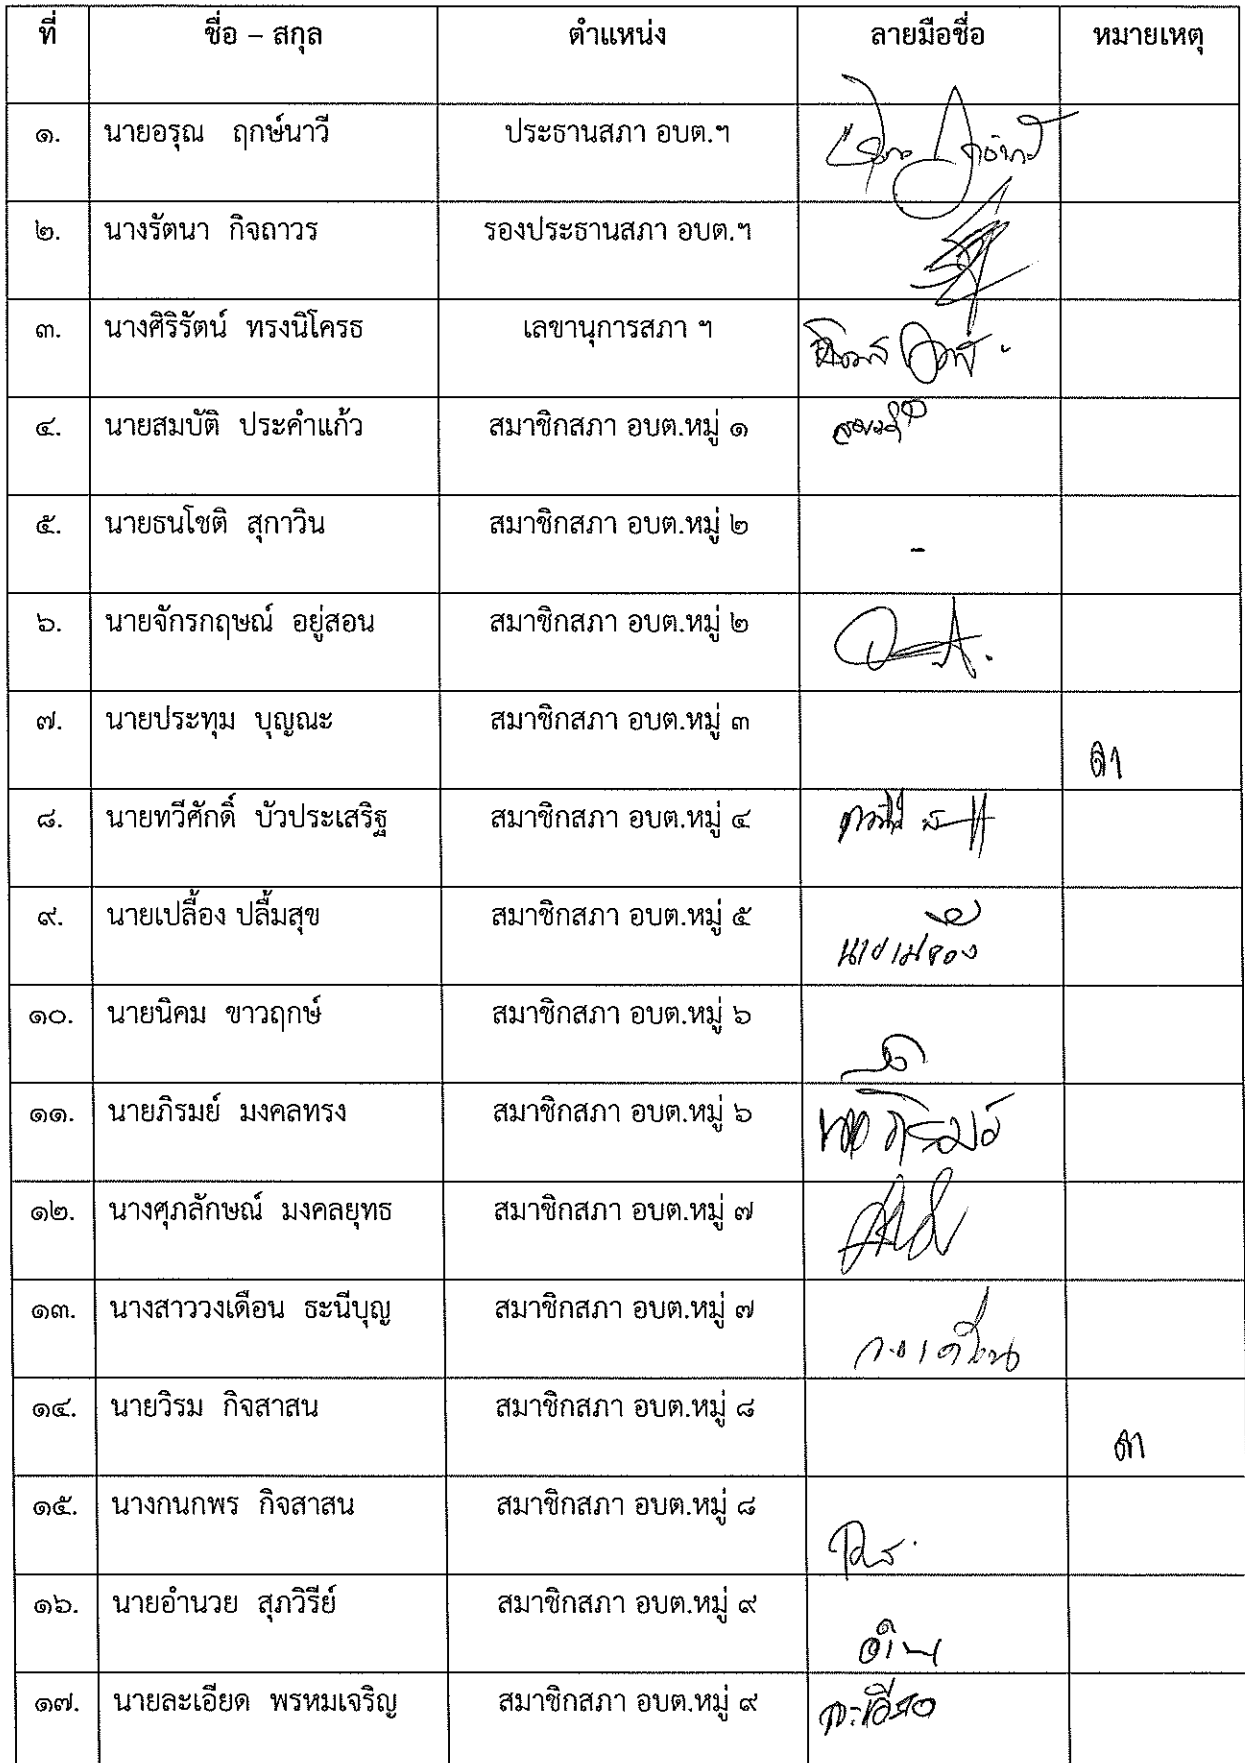 ที่ ชื่อ – สกุล ตำแหน่ง ลายมือชื่อ หมายเหตุ
๑. นายอรุณ ฤกษ์นาวี ประธานสภา อบต.ฯ
๒. นางรัตนา กิจถาวร รองประธานสภา อบต.ฯ
๓. นางศิริรัตน์ ทรงนิโครธ เลขานุการสภา ฯ
๔. นายสมบัติ ประคำแก้ว สมาชิกสภา อบต.หมู่ ๑
๕. นายธนโชติ สุกาวิน สมาชิกสภา อบต.หมู่ ๒ -
๖. นายจักรกฤษณ์ อยู่สอน สมาชิกสภา อบต.หมู่ ๒
๗. นายประทุม บุญณะ สมาชิกสภา อบต.หมู่ ๓ ลา
๘. นายทวีศักดิ์ บัวประเสริฐ สมาชิกสภา อบต.หมู่ ๔
๙. นายเปลื้อง ปลื้มสุข สมาชิกสภา อบต.หมู่ ๕ นายเปลื้อง
๑๐. นายนิคม ขาวฤกษ์ สมาชิกสภา อบต.หมู่ ๖
๑๑. นายภิรมย์ มงคลทรง สมาชิกสภา อบต.หมู่ ๖ นายภิรมย์
๑๒. นางศุภลักษณ์ มงคลยุทธ สมาชิกสภา อบต.หมู่ ๗
๑๓. นางสาววงเดือน ธะนีบุญ สมาชิกสภา อบต.หมู่ ๗ วงเดือน
๑๔. นายวิรม กิจสาสน สมาชิกสภา อบต.หมู่ ๘ ลา
๑๕. นางกนกพร กิจสาสน สมาชิกสภา อบต.หมู่ ๘
๑๖. นายอำนวย สุภวิรีย์ สมาชิกสภา อบต.หมู่ ๙
๑๗. นายละเอียด พรหมเจริญ สมาชิกสภา อบต.หมู่ ๙ ละเอียด